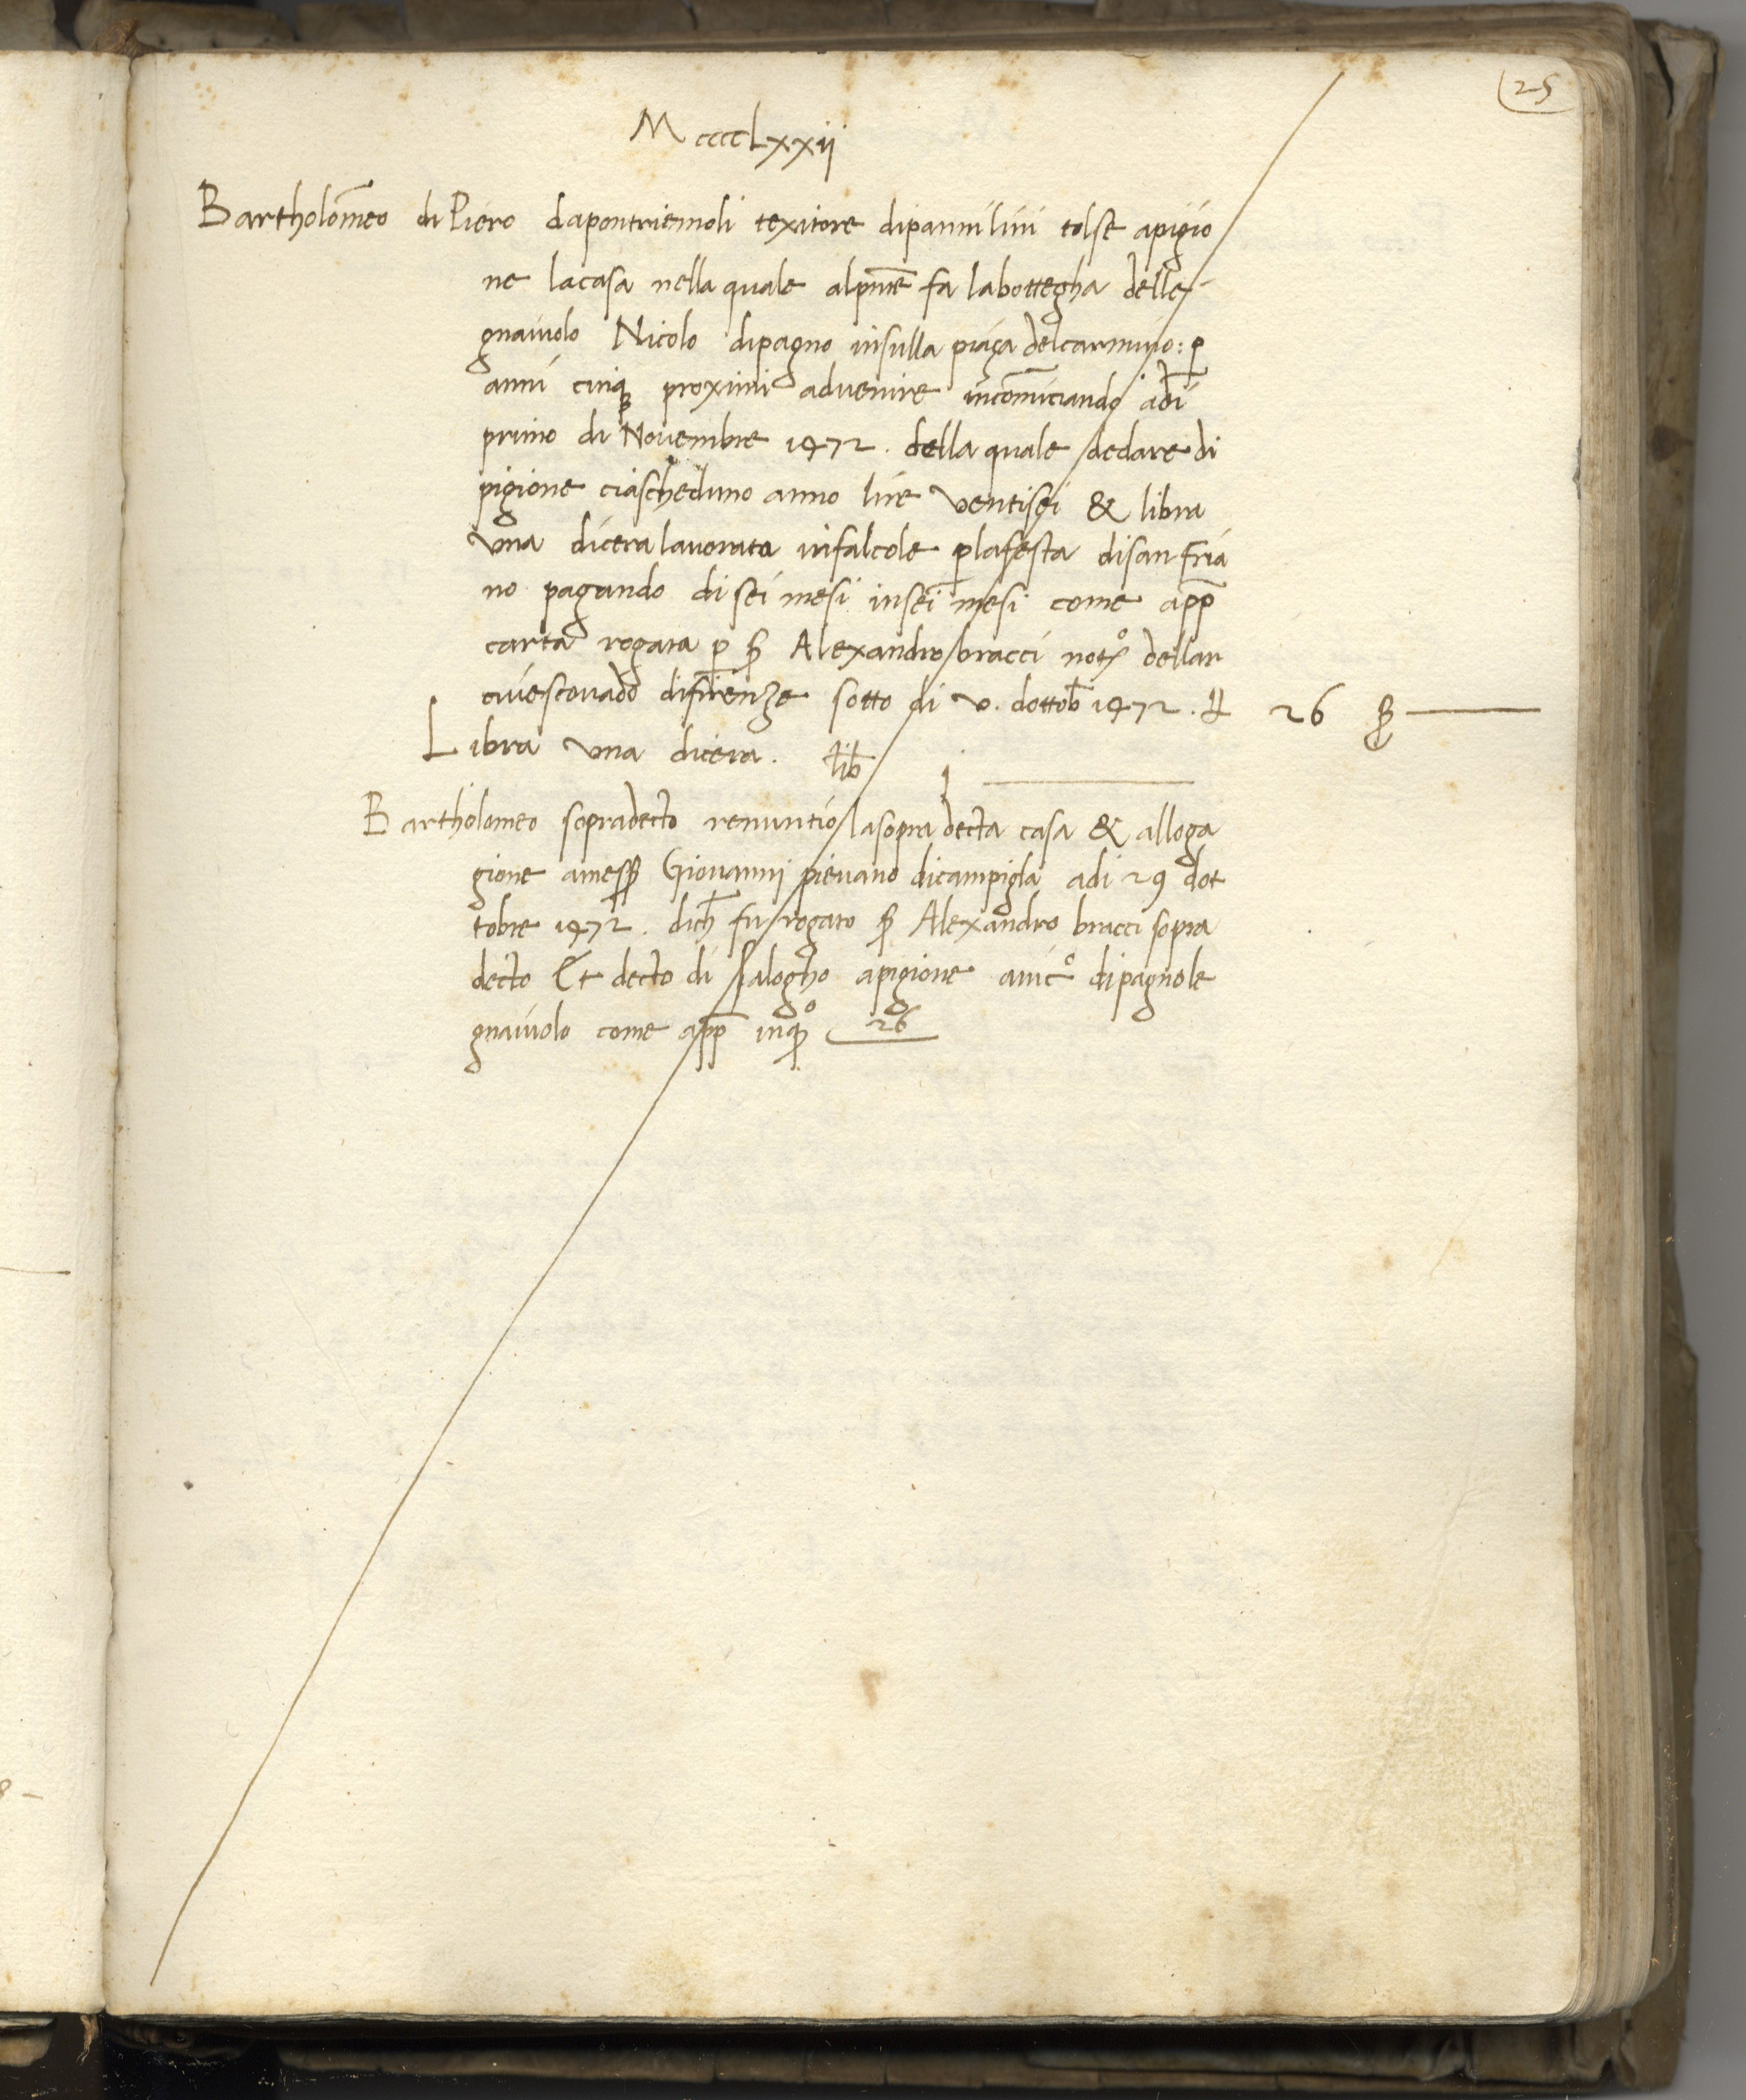 25
MccccLxxii
Bartholomeo di Piero dapontriemoli texitore dipannilini tolse apigio
ne lacasa nella quale alpnte fa labottegha delle
gnaiuolo Nicolo dipagno insulla piaça delcarmino: p
anni cinq proximi advenire incominciando adi
primo di Novembre 1472. della quale dedare di
pigione ciascheduno anno lire ventisei & libra
una dicera lavorata infalcole p lafesta disanfria
no pagando di sei mesi insei mesi come app
carta rogata p S Alexandro bracci noto dellar
civescovado difirenze sotto di v. dottob 1472. 26
Libra una dicera. lib j
Bartholomeo sopradecto renuntio lasopradecta casa & alloga
gione amess Giovanni pievano dicampigla adi 29 dot
tobre 1472. dich fu rogato S Alexandro bracci sopra
decto Et decto di salogho apigione anico dipagnole
gnaiuolo come app inqo 26